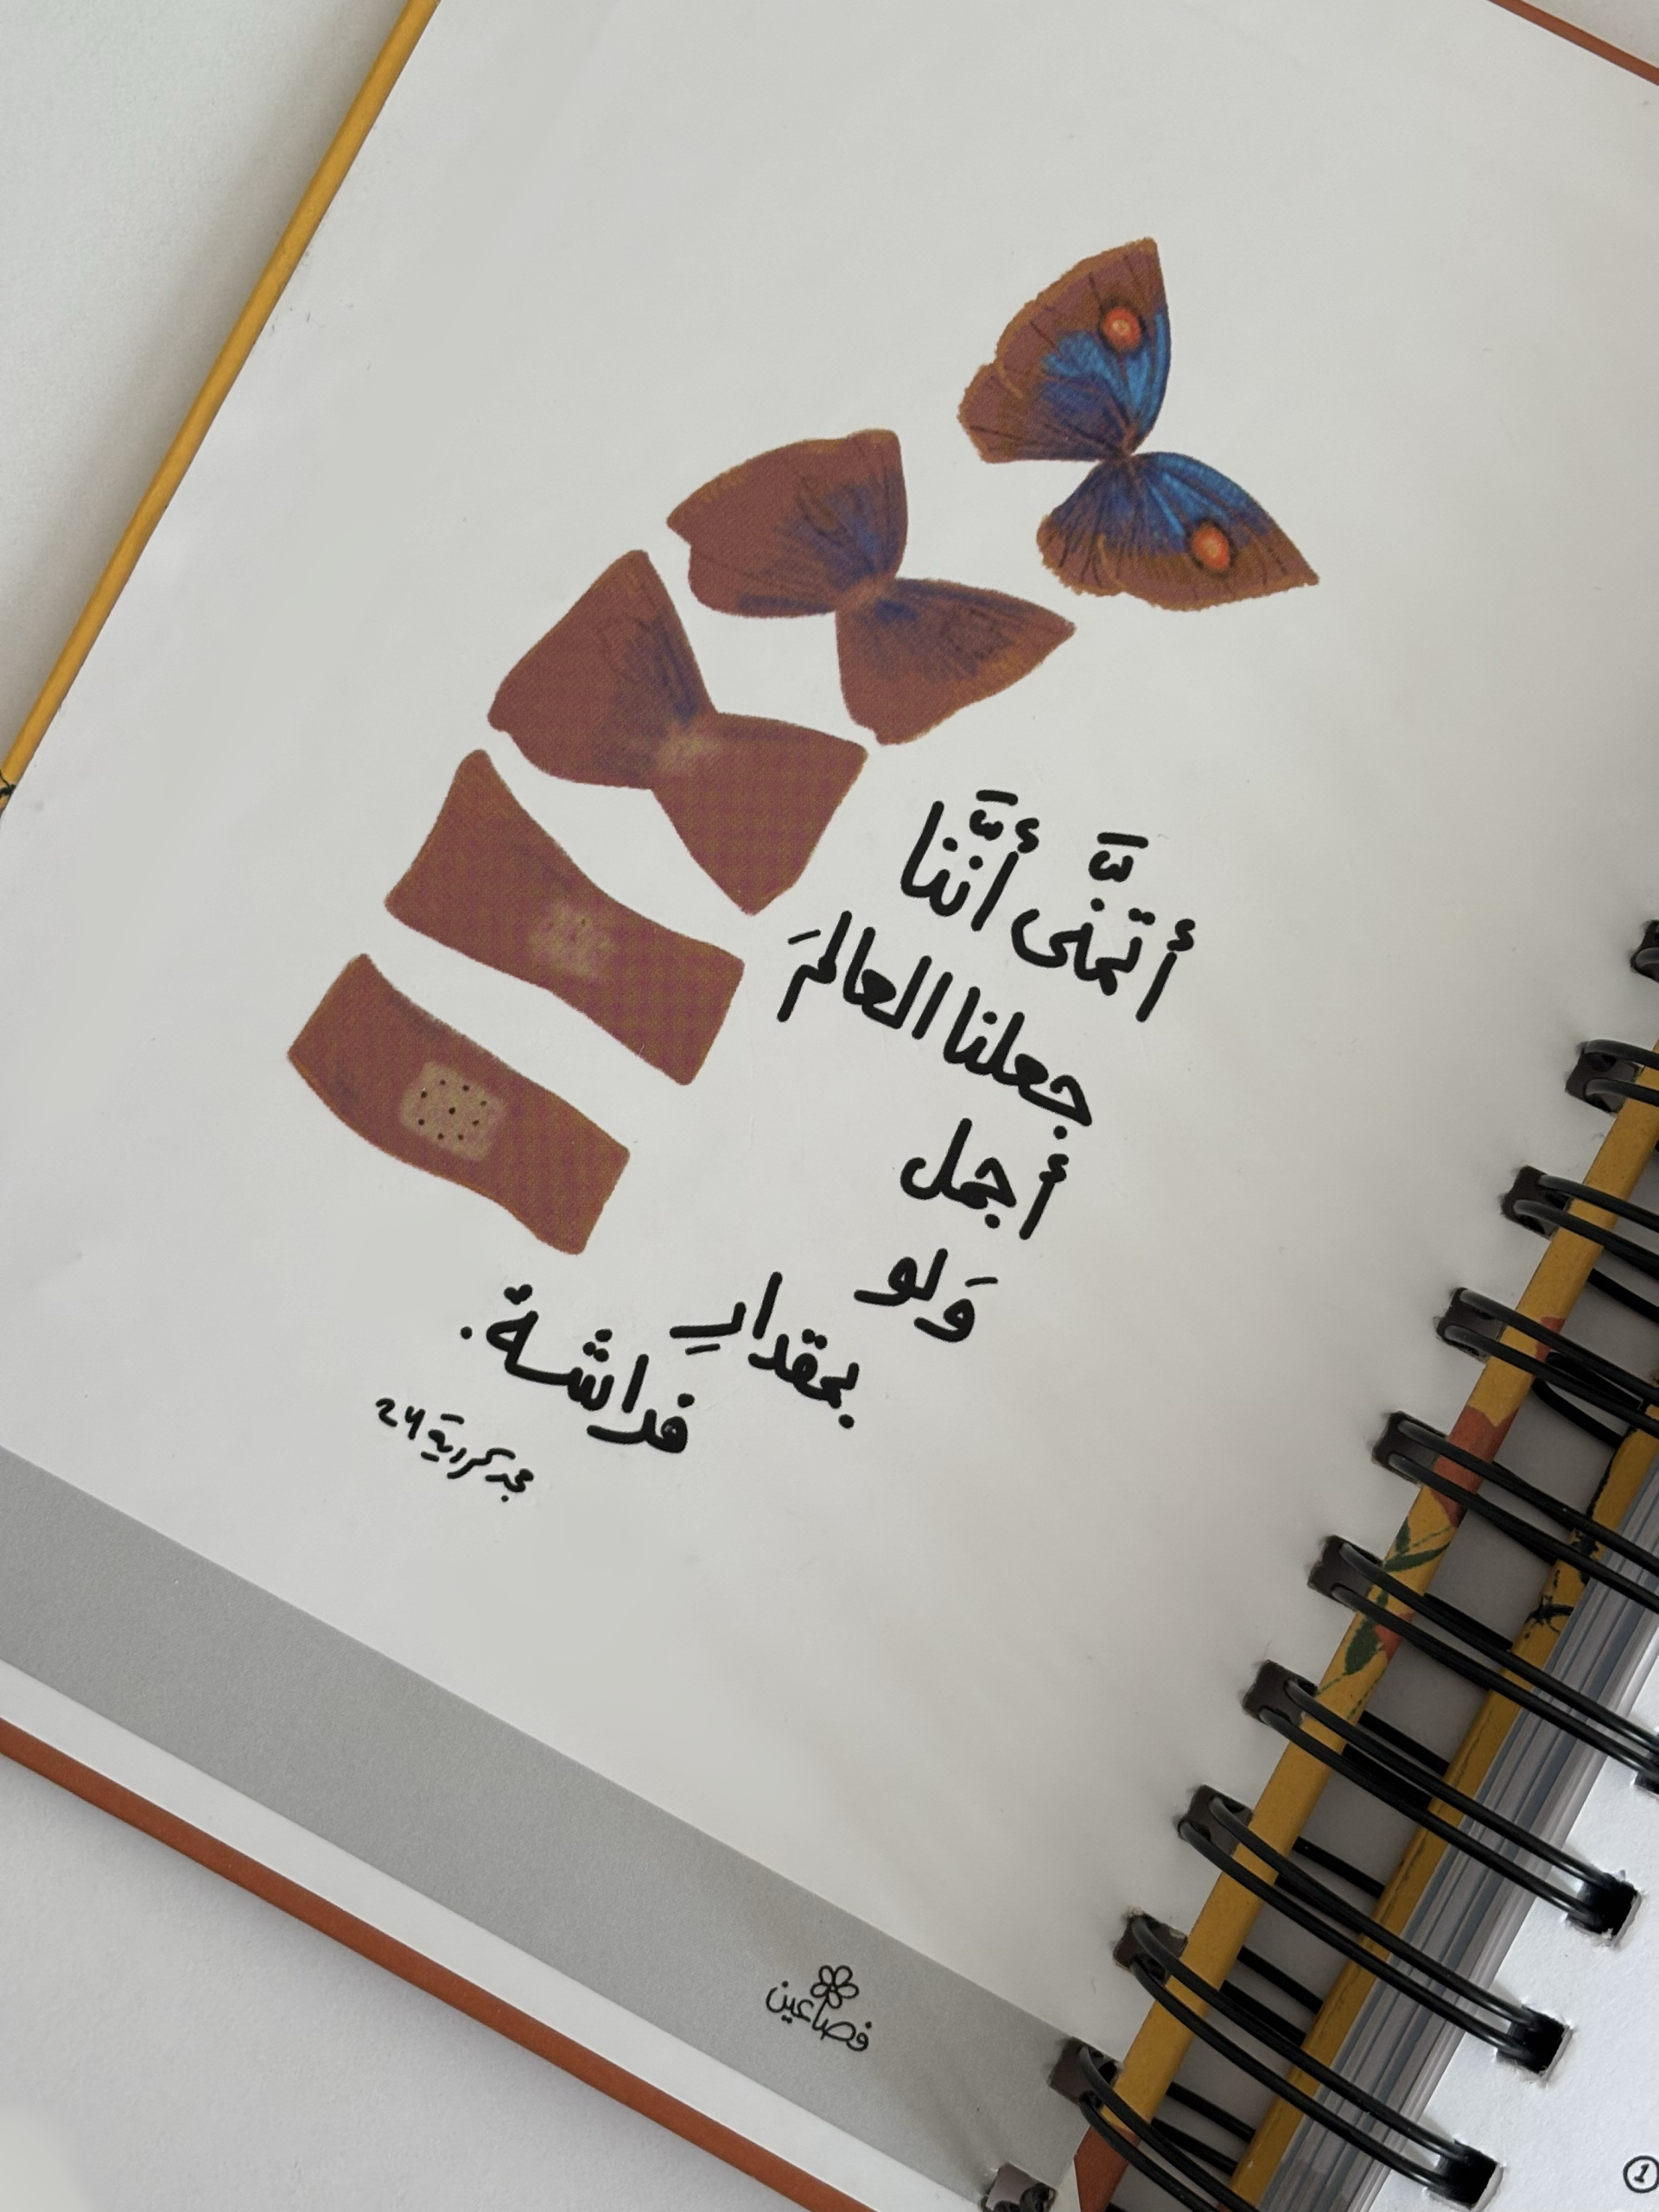 أتمنَّى أنَّنا
جعلنا العالمَ
أجمل
وَلو
بمقدارِ
فراشة.
مجد كردية 24
فصاعين
1